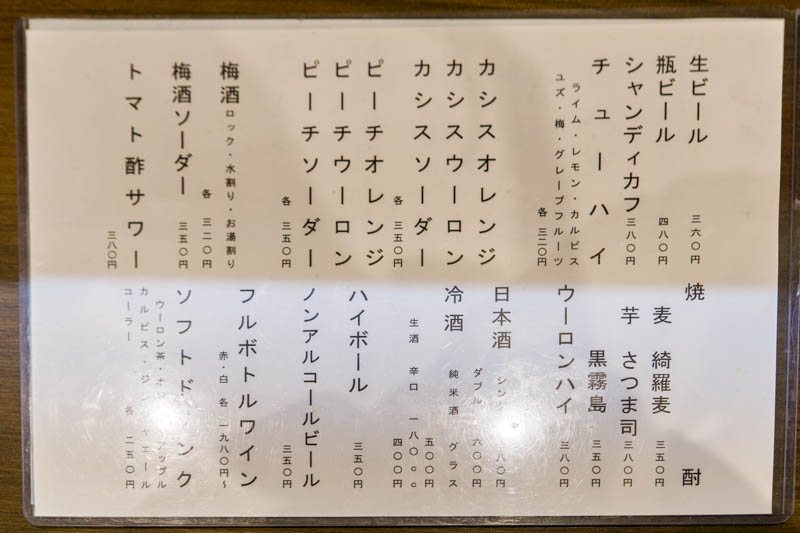 生ビール 三六〇円
瓶ビール 四八〇円
シャンディカフ 三八〇円
チューハイ
ライム・レモン・カルピス
ユズ・梅・グレープフルーツ
各 三二〇円
カシスオレンジ
カシスウーロン
カシスソーダー
各 三五〇円
ピーチオレンジ
ピーチウーロン
ピーチソーダー
各 三五〇円
梅酒 ロック・水割り・お湯割り
各 三二〇円
梅酒ソーダー 三五〇円
トマト酢サワー 三八〇円
焼 酎
麦 綺羅麦 三五〇円
芋 さつま司 三八〇円
黒霧島 三五〇円
ウーロンハイ 三八〇円
日本酒
八〇円
ダブル 六〇〇円
冷酒 純米酒 グラス
五〇〇円
生酒 辛口 一八〇cc
四〇〇円
ハイボール 三五〇円
ノンアルコールビール 三五〇円
フルボトルワイン
赤・白 各 一九八〇円〜
ソフトドリンク
ウーロン茶・オレ アップル
カルピス・ジン ャエール
コーラー 各 二五〇円